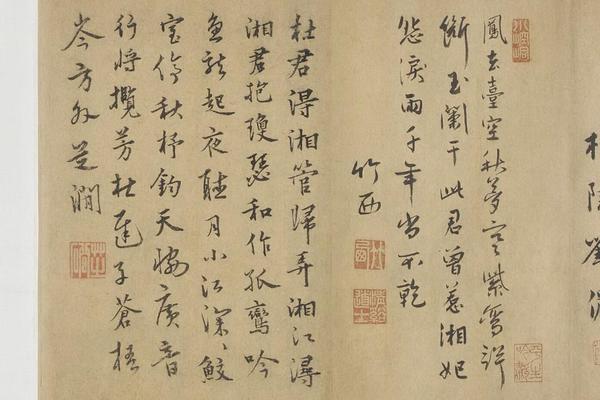 鳳去臺空秋夢寒紫
斷玉闌干此君曾惹湘妃
淚雨千年尚不乾
竹西
杜君得湘管歸弄湘江潯
湘君抱瓊瑟和作孤鸞吟
魚龍起夜聽月小江深〻鮫
宮停秋杼鈞天愧廣音
行將攬芳杜遲子蒼梧
岑方外 澗